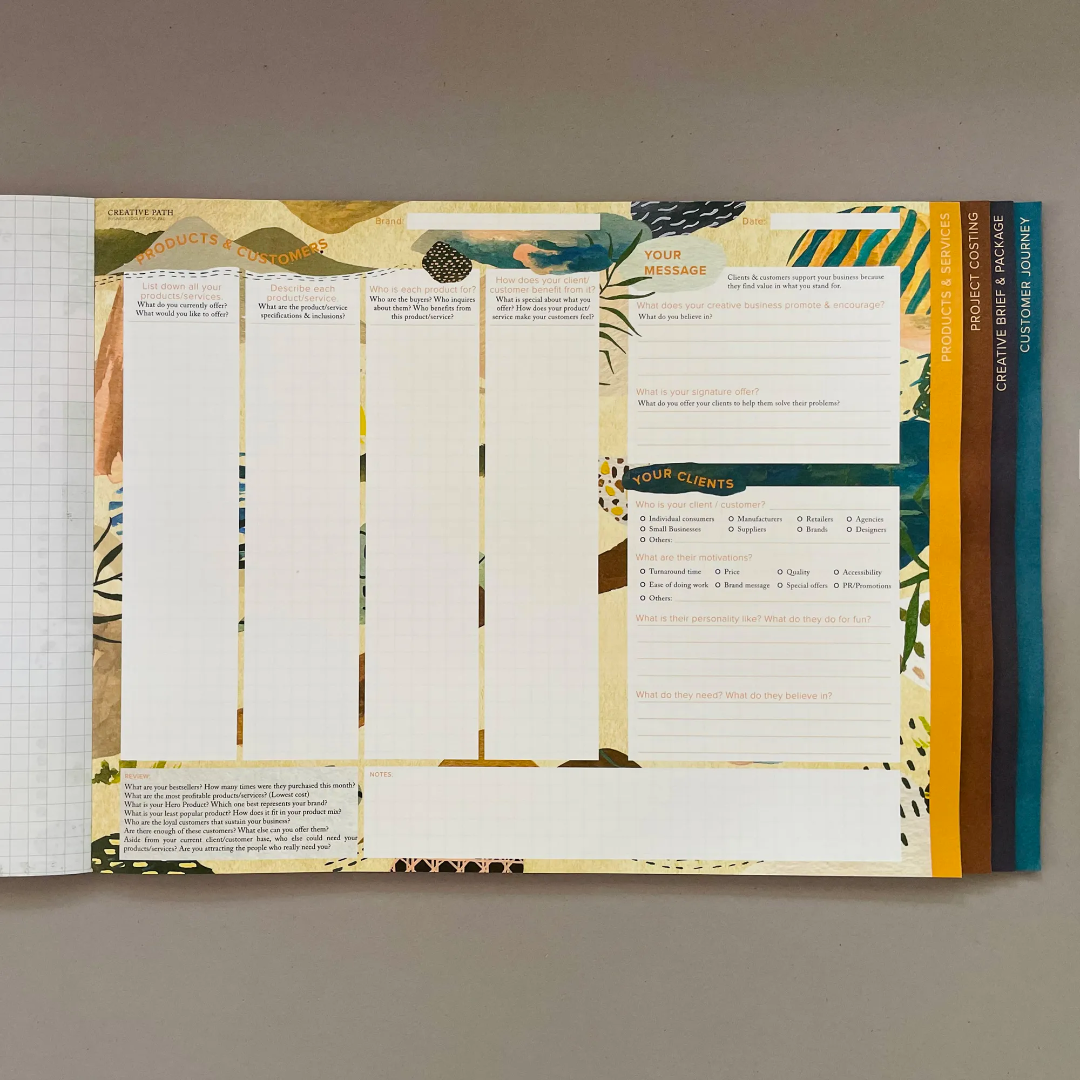 CREATIVE PATH
Brand:
Date:
PRODUCTS & CUSTOMERS
List down all your
products/services.
What do you currently offer?
What would you like to offer?
Describe each
product/service.
What are the product/service
specifications & inclusions?
Who is each product for?
Who are the buyers? Who inquires
about them? Who benefits from
this product/service?
How does your client/
customer benefit from it?
What is special about what you
offer? How does your product/
service make your customers feel?
YOUR
MESSAGE
Clients & customers support your business because
they find value in what you stand for.
What does your creative business promote & encourage?
What do you believe in?
What is your signature offer?
What do you offer your clients to help them solve their problems?
YOUR CLIENTS
Who is your client / customer?
Individual consumers Manufacturers Retailers Agencies
Small Businesses Suppliers Brands Designers
Others:
What are their motivations?
Turnaround time Price Quality Accessibility
Ease of doing work Brand message Special offers PR/Promotions
Others:
What is their personality like? What do they do for fun?
What do they need? What do they believe in?
REVIEW:
What are your bestsellers? How many times were they purchased this month?
What are the most profitable products/services? (Lowest cost)
What is your Hero Product? Which one best represents your brand?
What is your least popular product? How does it fit in your product mix?
Who are the loyal customers that sustain your business?
Are there enough of these customers? What else can you offer them?
Aside from your current client/customer base, who else could need your
products/services? Are you attracting the people who really need you?
NOTES:
PRODUCTS & SERVICES
PROJECT COSTING
CREATIVE BRIEF & PACKAGE
CUSTOMER JOURNEY